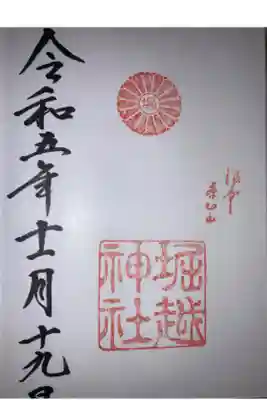 堀越
神社
令和五年十一月十九日